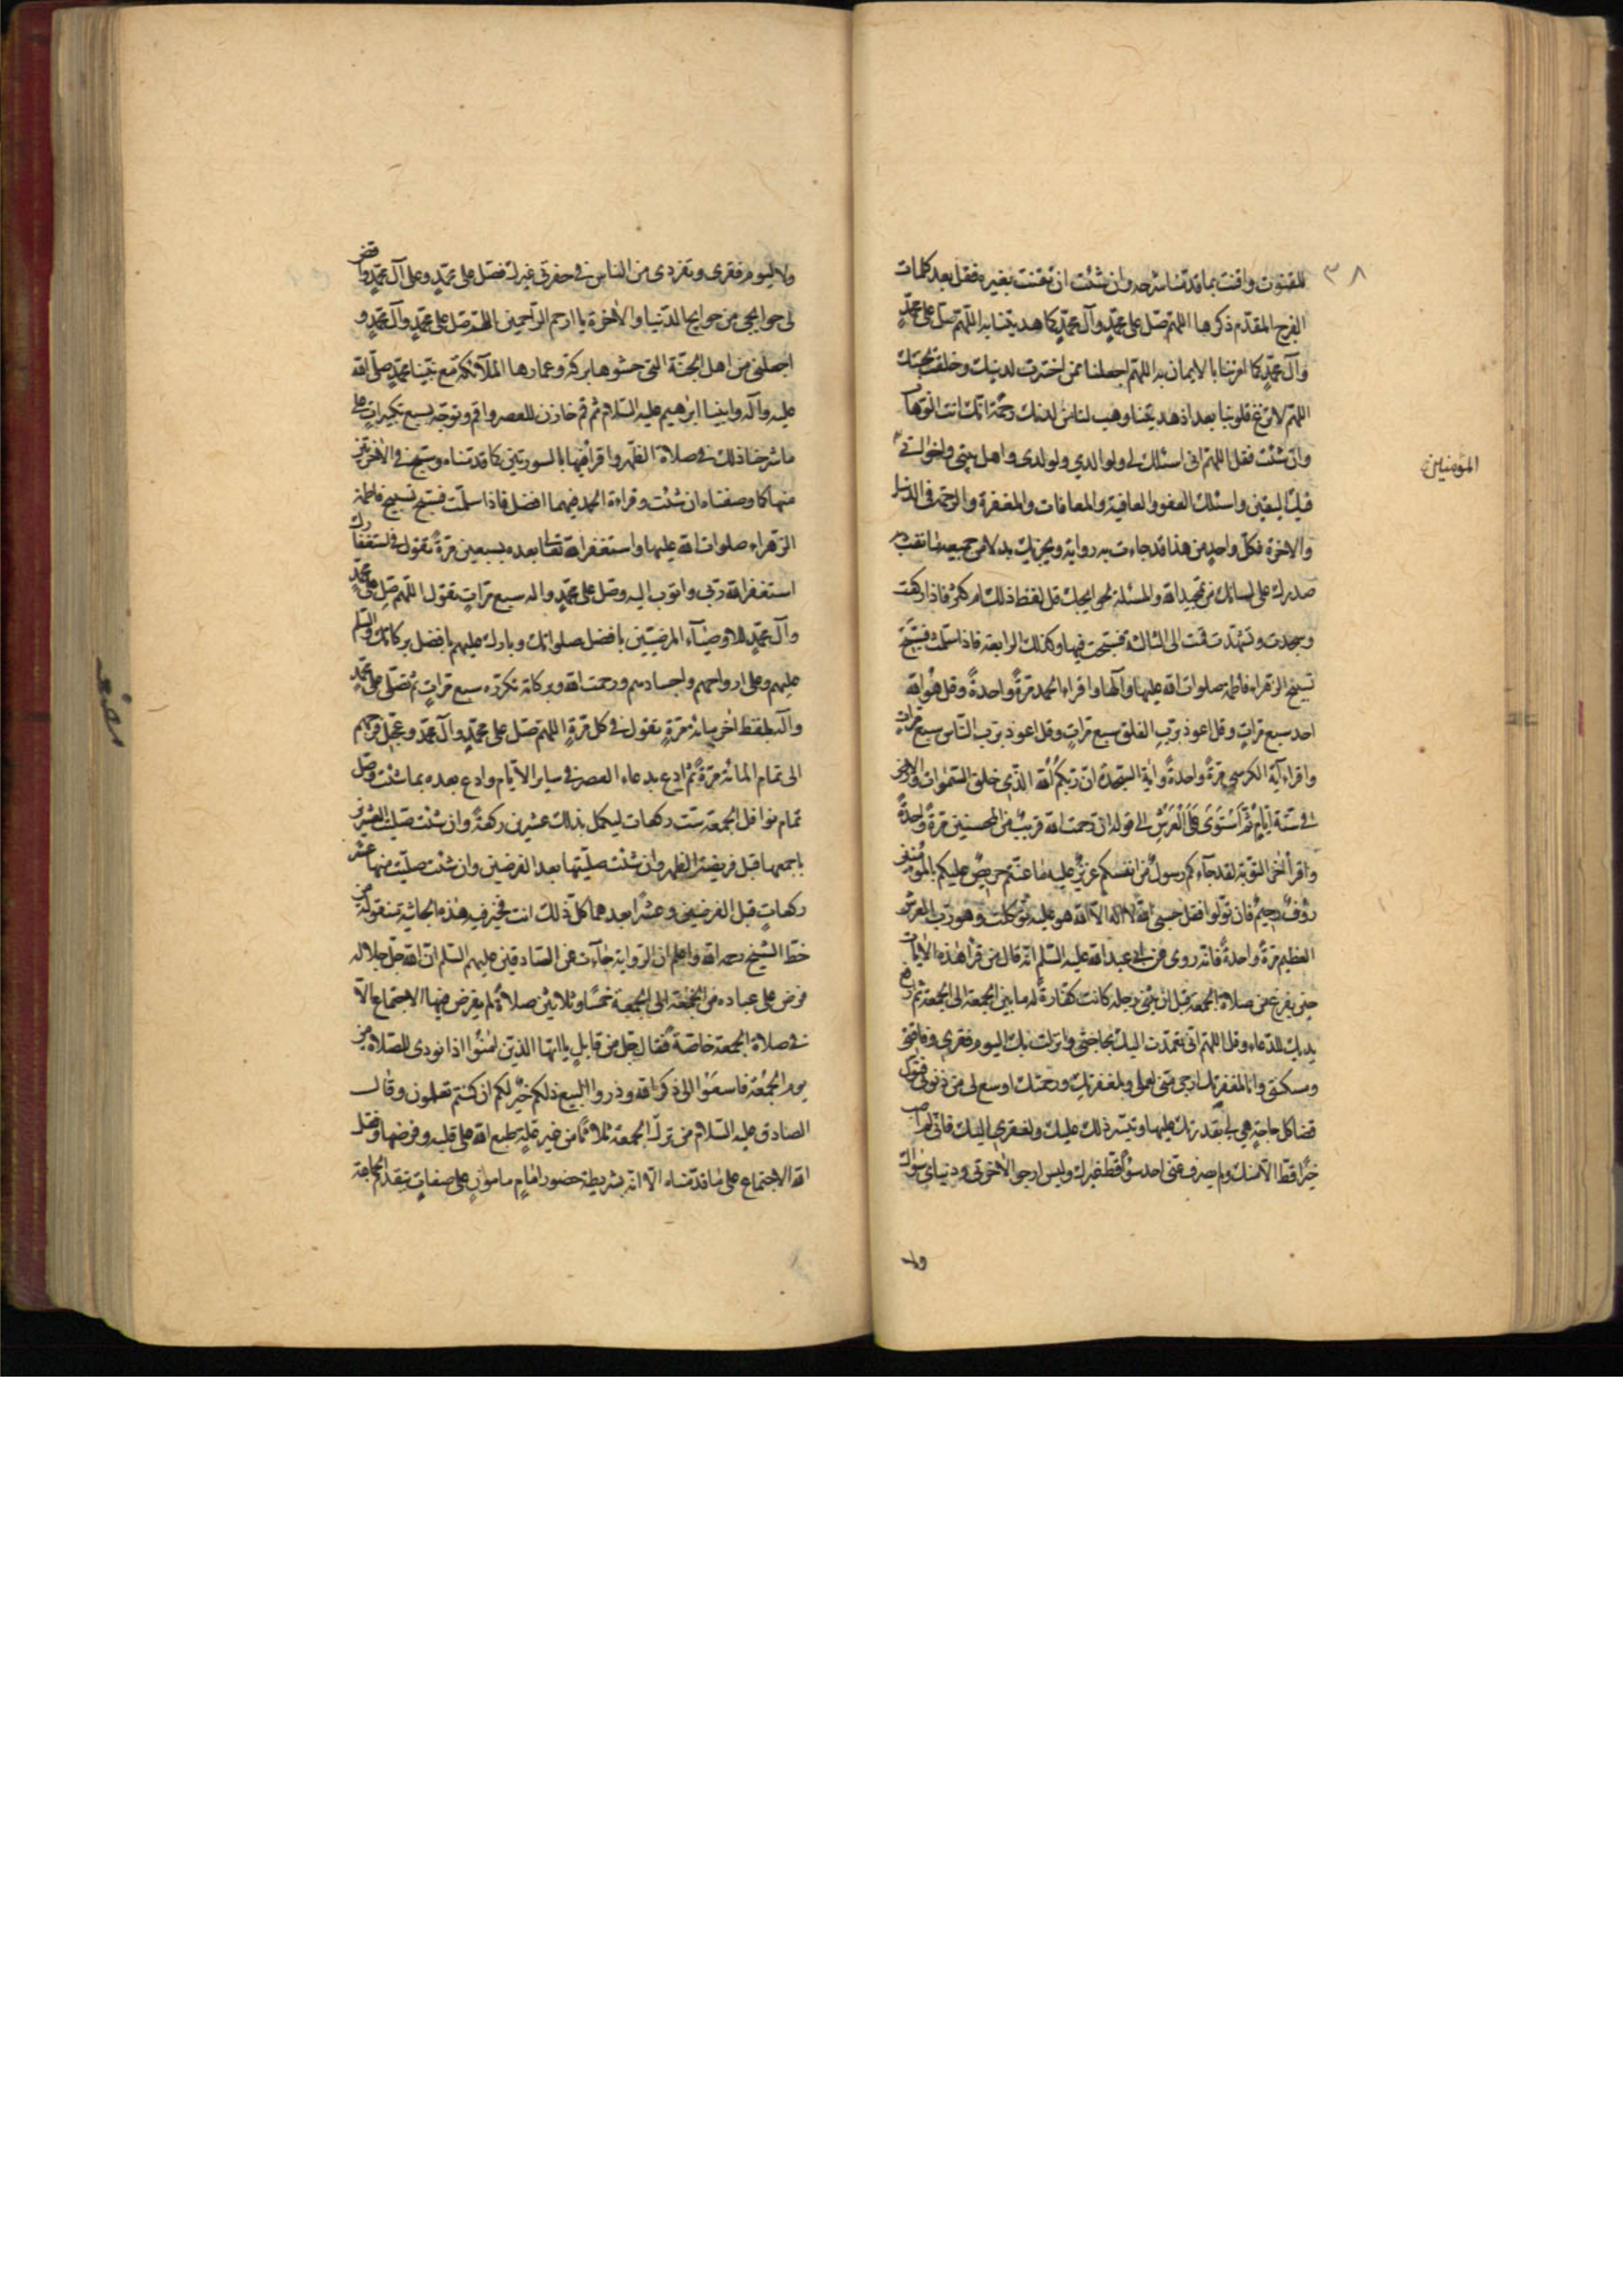 ٣٨
للقنوت واقنت بما قدمنا شرحه وان شئت ان تقنت بغيره فقل بعد كلمات
الفرج المقدم ذكرها اللهم صل على محمد وآل محمد كما هديتنا به اللهم صل على محمد
وآل محمد كما اكرمتنا بالايمان به اللهم اجعلنا ممن اخترت لدينك وخلقته لجنتك
اللهم لا تزغ قلوبنا بعد اذ هديتنا وهب لنا من لدنك رحمة انك انت الوهاب
وان شئت فقل اللهم انى اسئلك لى ولوالدي ولولدى واهل بيتى واخوانى
المؤمنين
فيك اليقين واسئلك العفو والعافية والمعافات والمغفرة والرحمة فى الدنيا
والاخرة فكل واحد من هذا قد جاءت به رواية ويجزيك بدلا من جميعه ما نفث به
صدرك على لسانك من تمجيد الله والمسئلة لحوايجك قل لفظ ذلك ام كثر فاذا ركعت
وسجدت وتشهدت قمت الى الثالثة فسبحت فيها وكذلك الرابعة فاذا سلمت فسبح
تسبيح الزهراء فاطمة صلوات الله عليها وآلها واقراء الحمد مرة واحدة وقل هو الله
احد سبع مرات وقل اعوذ برب الفلق سبع مرات وقل اعوذ برب الناس سبع مرات
واقراء آية الكرسي مرة واحدة وآية السخرة ان ربكم الله الذي خلق السموات والارض
فى ستة ايام ثم استوى على العرش الى قوله ان رحمت الله قريب من المحسنين مرة واحدة
واقرأ اخر التوبة لقد جاءكم رسول من انفسكم عزيز عليه ما عنتم حريص عليكم بالمؤمنين
رؤف رحيم فان تولوا فقل حسبى الله لا اله الا الله هو عليه توكلت وهو رب العرش
العظيم مرة واحدة فانه روى عن ابى عبد الله عليه السلم انه قال من قرأ هذه الايات
حين يفرغ من صلاة الجمعة قبل ان يثنى رجله كانت كفارة له ما بين الجمعة الى الجمعة ثم ارفع
يديك للدعاء وقل اللهم انى تعمدت اليك بحاجتى وانزلت بك اليوم فقرى وفاقتى
ومسكنتى وانا لمغفرتك ارجى منى لعملى ولمغفرتك ورحمتك اوسع لى من ذنوبى فتول
قضا كل حاجة هي لى بقدرتك عليها وتيسر ذلك عليك ولفقرى اليك فانى لم اصب
خيرا قط الا منك ولم يصرف عنى احد سوءا قط غيرك وليس ارجو لاخرتى ودنياى سواك
ولا
ولا ليوم فقرى وتفردى من الناس فى حفرتى غيرك فصل على محمد وعلى آل محمد واقض
لى حوايجى من حوايج الدنيا والاخرة يا ارحم الراحمين اللهم صل على محمد وآل محمد و
اجعلنى من اهل الجنة التى حشوها بركة وعمارها الملآئكة مع نبينا محمد صلى الله
عليه وآله وابينا ابرهيم عليه السلام ثم قم فاذن للعصر واقم وتوجه بسبع تكبيرات على
ما شرحنا ذلك فى صلاة الظهر واقرأ فيها بالسورتين كما قدمناه وسبح فى الاخرتين
منها كما وصفناه ان شئت وقراءة الحمد فيهما افضل فاذا سلمت فسبح تسبيح فاطمة
الزهراء صلوات الله عليها واستغفر الله تعالى بعده سبعين مرة تقول فى استغفارك
استغفر الله ربى واتوب اليه وصل على محمد واله سبع مرات تقول اللهم صل على محمد
وآل محمد الاوصيآء المرضيين بافضل صلواتك وبارك عليهم بافضل بركاتك والسلم
عليهم وعلى ارواحهم واجسادهم ورحمت الله وبركاته تكرره سبع مرات ثم تصلى على محمد
وآله بلفظ اخر مائة مرة تقول فى كل مرة اللهم صل على محمد وآل محمد وعجل فرجهم
الى تمام المائة مرة ثم ادع بدعاء العصر فى ساير الايام وادع بعده بما شئت وصل
تمام نوافل الجمعة ست ركعات ليكمل بذلك عشرين ركعة وان شئت صليت العشرين
باجمعها قبل فريضة الظهر وان شئت صليتها بعد الفرضين وان شئت صليت منها عشر
ركعات قبل الفرضين وعشرا بعدهما كل ذلك انت مخير فيه هذه الحاشية منقولة من
خط الشيخ رحمه الله واعلم ان الرواية جآءت عن الصادقين عليهم السلم ان الله جل جلاله
فرض على عباده من الجمعة الى الجمعة خمسا وثلاثين صلاة لم يفرض فيها الاجتماع الا
فى صلاة الجمعة خاصة فقال جل من قايل يا ايها الذين امنوا اذا نودى للصلاة من
يوم الجمعة فاسعوا الى ذكر الله وذروا البيع ذلكم خير لكم ان كنتم تعلمون وقال
الصادق عليه السلام من ترك الجمعة ثلاثا من غير علة طبع الله على قلبه وفرضها وفقك
الله الاجتماع على ما قدمناه الا انه بشريطة حضور امام مامون على صفات يتقدم الجماعة